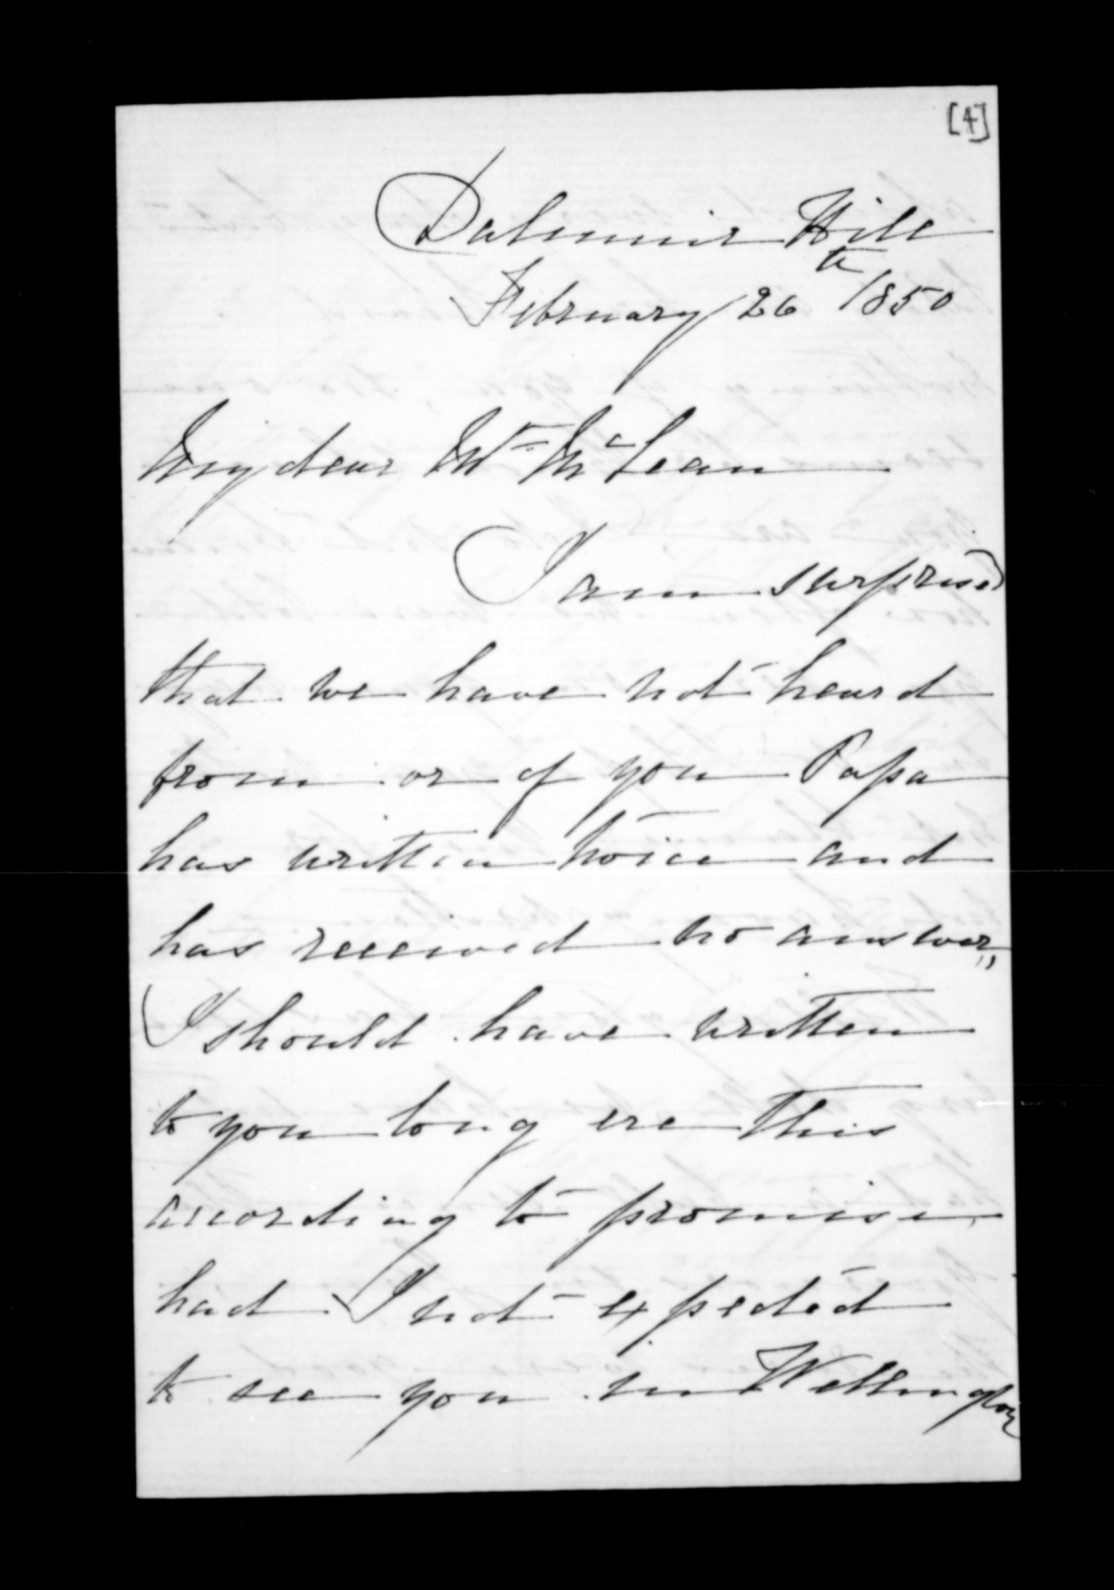 [4]
Dalmuir Hill
February 26th 1850
My dear Mr McLean
I am surprised
that we have not heard
from or of you Papa
has written twice and
has received no answer,,
I should have written
to you long ere this
according to promise
had I not expected
to see you in Wellington